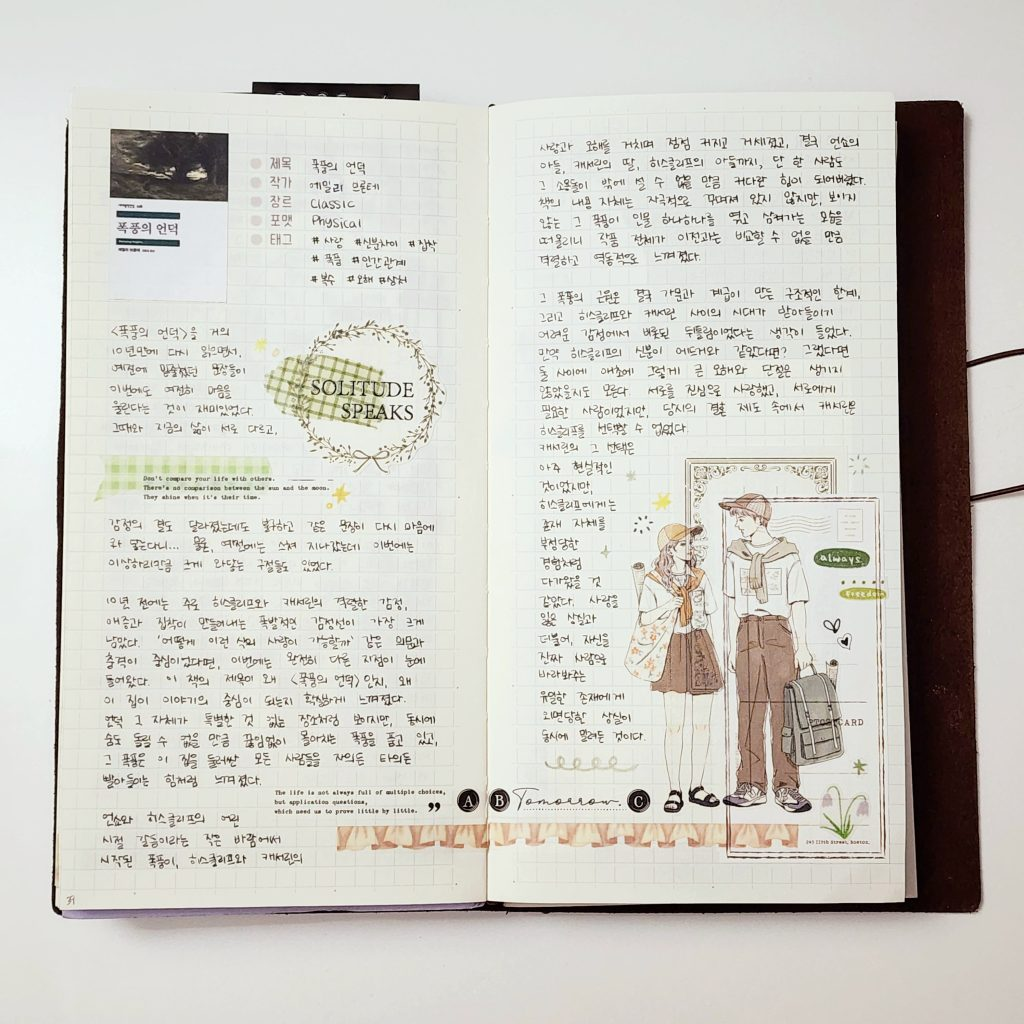 폭풍의 언덕
제목 폭풍의 언덕
작가 에밀리 브론테
장르 Classic
포맷 Physical
태그 #사랑 #신분차이 #집착
#폭풍 #인간관계
#복수 #오해 #상처
<폭풍의 언덕>을 거의
10년만에 다시 읽으면서,
예전에 밑줄쳤던 문장들이
이번에도 여전히 마음을
울린다는 것이 재미있었다.
그때와 지금의 삶이 서로 다르고,
SOLITUDE
SPEAKS
Don't compare your life with others.
There's no comparison between the sun and the moon.
They shine when it's their time.
감정의 결도 달라졌는데도 불구하고 같은 문장이 다시 마음에
와 닿는다니... 물론, 예전에는 스쳐 지나갔는데 이번에는
이상하리만큼 크게 와닿는 구절들도 있었다.
10년 전에는 주로 히스클리프와 캐서린의 격렬한 감정,
애증과 집착이 만들어내는 폭발적인 감정선이 가장 크게
남았다. '어떻게 이런 식의 사랑이 가능할까' 같은 의문과
충격이 중심이었다면, 이번에는 완전히 다른 지점이 눈에
들어왔다. 이 책의 제목이 왜 <폭풍의 언덕>인지, 왜
이 집이 이야기의 중심이 되는지 확실하게 느껴졌다.
언덕 그 자체가 특별한 것 없는 장소처럼 보이지만, 동시에
숨도 돌릴 수 없을 만큼 끊임없이 몰아치는 폭풍을 품고 있고,
그 폭풍은 이 집을 둘러싼 모든 사람들을 자의든 타의든
빨아들이는 힘처럼 느껴졌다.
The life is not always full of multiple choices,
but application questions,
which need us to prove little by little.
언쇼와 히스클리프의 어린
시절 갈등이라는 작은 바람에서
시작된 폭풍이, 히스클리프와 캐서린의
39
사랑과 오해를 거치며 점점 커지고 거세졌고, 결국 언쇼의
아들, 캐서린의 딸, 히스클리프의 아들까지, 단 한 사람도
그 소용돌이 밖에 설 수 없을 만큼 커다란 힘이 되어버렸다.
책의 내용 자체는 자극적으로 꾸며져 있지 않지만, 보이지
않는 그 폭풍이 인물 하나하나를 엮고 삼켜가는 모습을
떠올리니 작품 전체가 이전과는 비교할 수 없을 만큼
격렬하고 역동적으로 느껴졌다.
그 폭풍의 근원은 결국 가문과 계급이 만든 구조적인 한계,
그리고 히스클리프와 캐서린 사이의 시대가 받아들이기
어려운 감정에서 비롯된 뒤틀림이었다는 생각이 들었다.
만약 히스클리프의 신분이 에드거와 같았다면? 그랬다면
둘 사이에 애초에 그렇게 큰 오해와 단절은 생기지
않았을지도 모른다. 서로를 진심으로 사랑했고, 서로에게
필요한 사람이었지만, 당시의 결혼 제도 속에서 캐서린은
히스클리프를 선택할 수 없었다.
캐서린의 그 선택은
아주 현실적인
것이었지만,
히스클리프에게는
존재 자체를
부정당한
경험처럼
다가왔을 것
같았다. 사랑을
잃은 상실과
더불어, 자신을
진짜 사람으로
바라봐주는
유일한 존재에게
외면당한 상실이
동시에 밀려든 것이다.
always.
Freedom
POSTCARD
A B Tomorrow. C
245 117th Street, Boston.